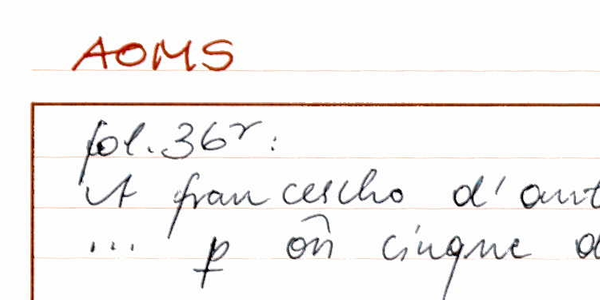 AOMS
fol. 36r:
A francescho d'ant
... p on̂ cinque d